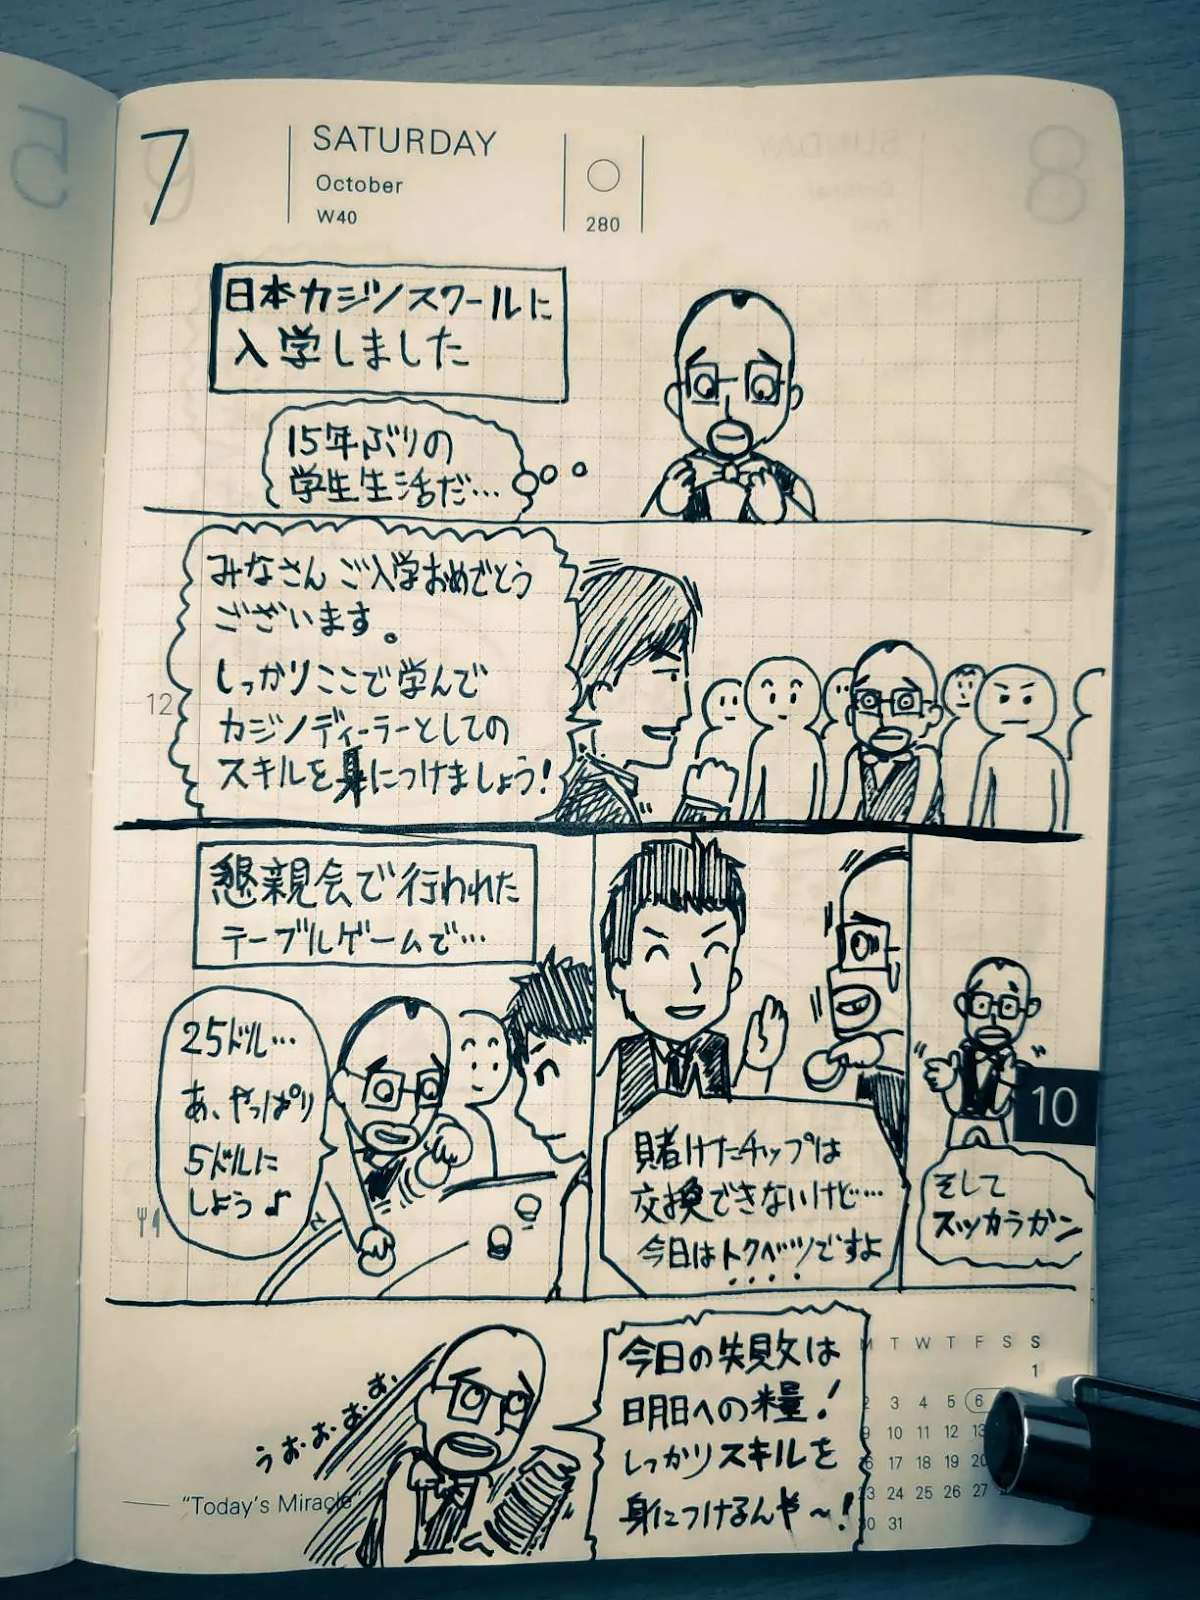 7
SATURDAY
October
W40
280
日本カジノスクールに
入学しました
15年ぶりの
学生生活だ…
みなさんご入学おめでとう
ございます。
しっかりここで学んで
カジノディーラーとしての
スキルを身につけましょう!
12
懇親会で行われた
テーブルゲームで…
25ドル…
あ、やっぱり
5ドルに
しよう♪
賭けたチップは
交換できないけど…
今日はトクベツですよ
10
そして
スッカラカン
うお・お・お・お・
今日の失敗は
明日への糧!
しっかりスキルを
身につけるんや〜!
"Today's Miracle"
M T W T F S S
1
2 3 4 5 6
9 10 11 12 13
16 17 18 19 20
23 24 25 26 27
30 31